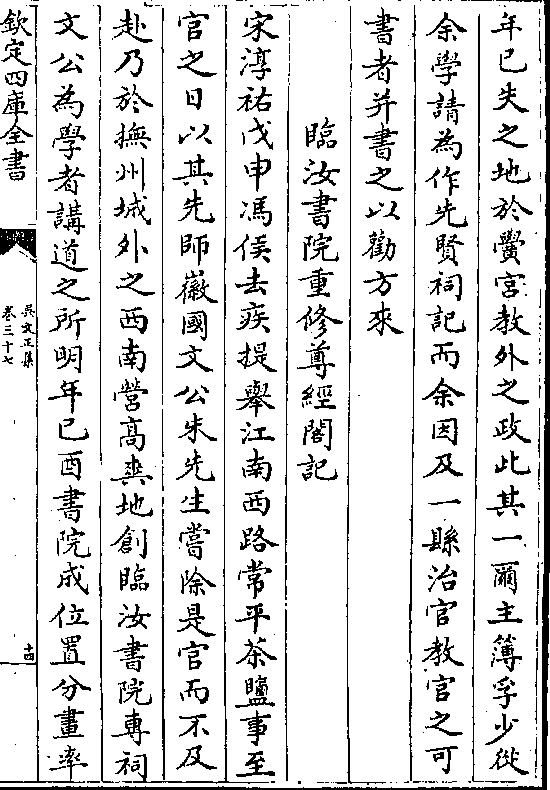 年已失之地於黌宮教外之政此其一爾主簿孚少從
余學請為作先賢祠記而余因及一縣治官教官之可
書者并書之以勸方來
臨汝書院重修尊經閣記
宋淳祐戊申馮侯去疾提舉江南西路常平茶鹽事至
官之日以其先師徽國文公朱先生嘗除是官而不及
赴乃於撫州城外之西南營高爽地創臨汝書院專祠
文公為學者講道之所明年已酉書院成位置分畫率
欽定四庫全書
吳文正集
卷三十七
十四